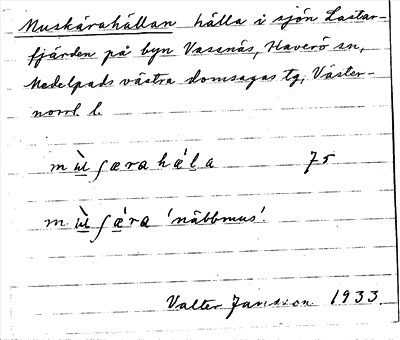 Muskärahällan hälla i sjön Lastar-
fjärden på byn Vasanäs, Haverö sn,
Medelpads västra domsagas tg, Väster-
norrl. l.
75
'näbbmus'.
Valter Jansson. 1933.